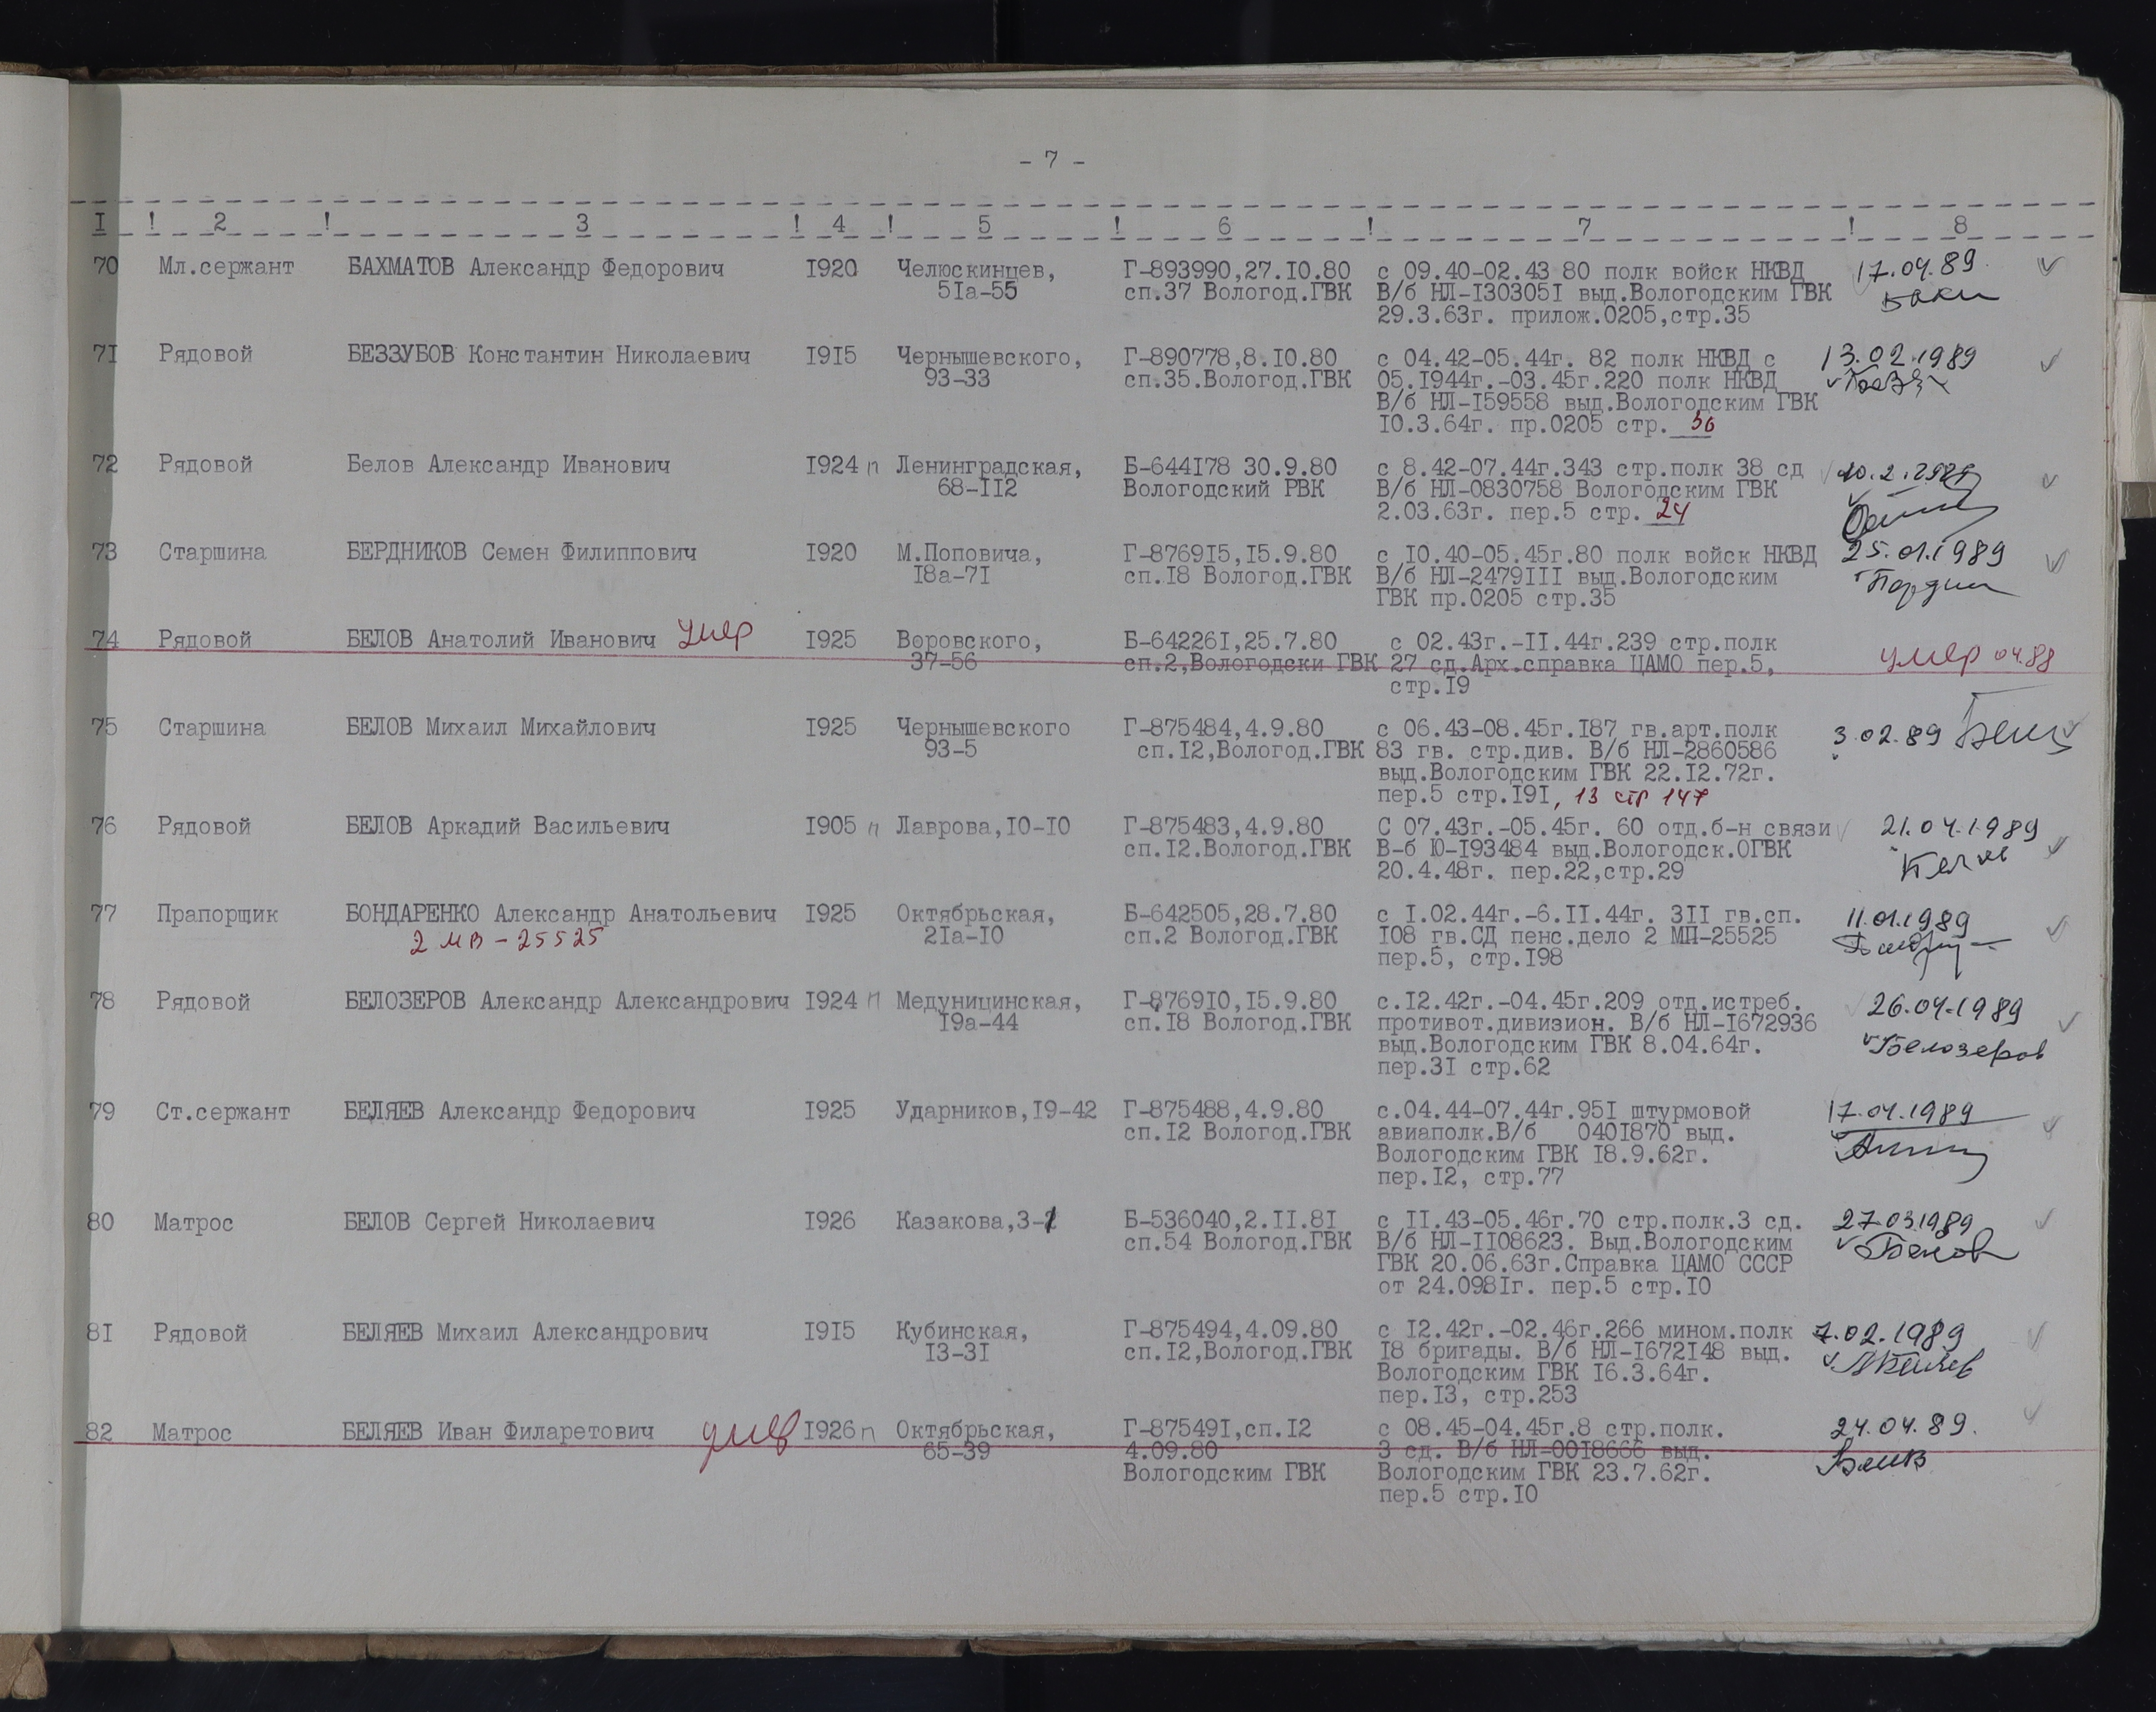 - 7 -
I ! 2 ! 3 ! 4 ! 5 ! 6 ! 7 ! 8
70 Мл.сержант БАХМАТОВ Александр Федорович I920 Челюскинцев, Г-893990,27.I0.80 с 09.40-02.43 80 полк войск НКВД 17.04.89
5Iа-55 сп.37 Вологод.ГВК В/б НЛ-I30305I выд.Вологодским ГВК
29.3.63г. прилож.0205,стр.35
7I Рядовой БЕЗЗУБОВ Константин Николаевич I9I5 Чернышевского, Г-890778,8.I0.80 с 04.42-05.44г. 82 полк НКВД с 13.02.1989
93-33 сп.35.Вологод.ГВК 05.I944г.-03.45г.220 полк НКВД
В/б НЛ-I59558 выд.Вологодским ГВК
I0.3.64г. пр.0205 стр. 36
72 Рядовой Белов Александр Иванович I924 п Ленинградская, Б-644I78 30.9.80 с 8.42-07.44г.343 стр.полк 38 сд
68-II2 Вологодский РВК В/б НЛ-0830758 Вологодским ГВК
2.03.63г. пер.5 стр. 24
73 Старшина БЕРДНИКОВ Семен Филиппович I920 М.Поповича, Г-8769I5,I5.9.80 с I0.40-05.45г.80 полк войск НКВД 25.01.1989
I8а-7I сп.I8 Вологод.ГВК В/б НЛ-2479III выд.Вологодским
ГВК пр.0205 стр.35
74 Рядовой БЕЛОВ Анатолий Иванович умер I925 Воровского, Б-64226I,25.7.80 с 02.43г.-II.44г.239 стр.полк умер 04.88
37-56 сп.2,Вологодски ГВК 27 сд.Арх.справка ЦАМО пер.5,
стр.I9
75 Старшина БЕЛОВ Михаил Михайлович I925 Чернышевского Г-875484,4.9.80 с 06.43-08.45г.I87 гв.арт.полк 3.02.89
93-5 сп.I2,Вологод.ГВК 83 гв. стр.див. В/б НЛ-2860586
выд.Вологодским ГВК 22.I2.72г.
пер.5 стр.I9I, 13 стр 147
76 Рядовой БЕЛОВ Аркадий Васильевич I905 п Лаврова,I0-I0 Г-875483,4.9.80 С 07.43г.-05.45г. 60 отд.б-н связи 21.04.1989
сп.I2.Вологод.ГВК В-б Ю-I93484 выд.Вологодск.ОГВК
20.4.48г. пер.22,стр.29
77 Прапорщик БОНДАРЕНКО Александр Анатольевич I925 Октябрьская, Б-642505,28.7.80 с I.02.44г.-6.II.44г. 3II гв.сп. 11.01.1989
2 МВ-25525 2Iа-I0 сп.2 Вологод.ГВК I08 гв.СД пенс.дело 2 МП-25525
пер.5, стр.I98
78 Рядовой БЕЛОЗЕРОВ Александр Александрович I924 п Медуницинская, Г-8769I0,I5.9.80 с.I2.42г.-04.45г.209 отд.истреб. 26.04.1989
I9а-44 сп.I8 Вологод.ГВК противот.дивизион. В/б НЛ-I672936
выд.Вологодским ГВК 8.04.64г. Белозеров
пер.3I стр.62
79 Ст.сержант БЕЛЯЕВ Александр Федорович I925 Ударников,I9-42 Г-875488,4.9.80 с.04.44-07.44г.95I штурмовой 17.04.1989
сп.I2 Вологод.ГВК авиаполк.В/б 040I870 выд.
Вологодским ГВК I8.9.62г.
пер.I2, стр.77
80 Матрос БЕЛОВ Сергей Николаевич I926 Казакова,3-1 Б-536040,2.II.8I с II.43-05.46г.70 стр.полк.3 сд. 27.03.1989
сп.54 Вологод.ГВК В/б НЛ-II08623. Выд.Вологодским Белов
ГВК 20.06.63г.Справка ЦАМО СССР
от 24.098Iг. пер.5 стр.I0
8I Рядовой БЕЛЯЕВ Михаил Александрович I9I5 Кубинская, Г-875494,4.09.80 с I2.42г.-02.46г.266 мином.полк 7.02.1989
I3-3I сп.I2,Вологод.ГВК I8 бригады. В/б НЛ-I672I48 выд.
Вологодским ГВК I6.3.64г.
пер.I3, стр.253
82 Матрос БЕЛЯЕВ Иван Филаретович умер I926 п Октябрьская, Г-87549I,сп.I2 с 08.45-04.45г.8 стр.полк. 24.04.89.
65-39 4.09.80 3 сд. В/б НЛ-00I8666 выд.
Вологодским ГВК Вологодским ГВК 23.7.62г.
пер.5 стр.I0